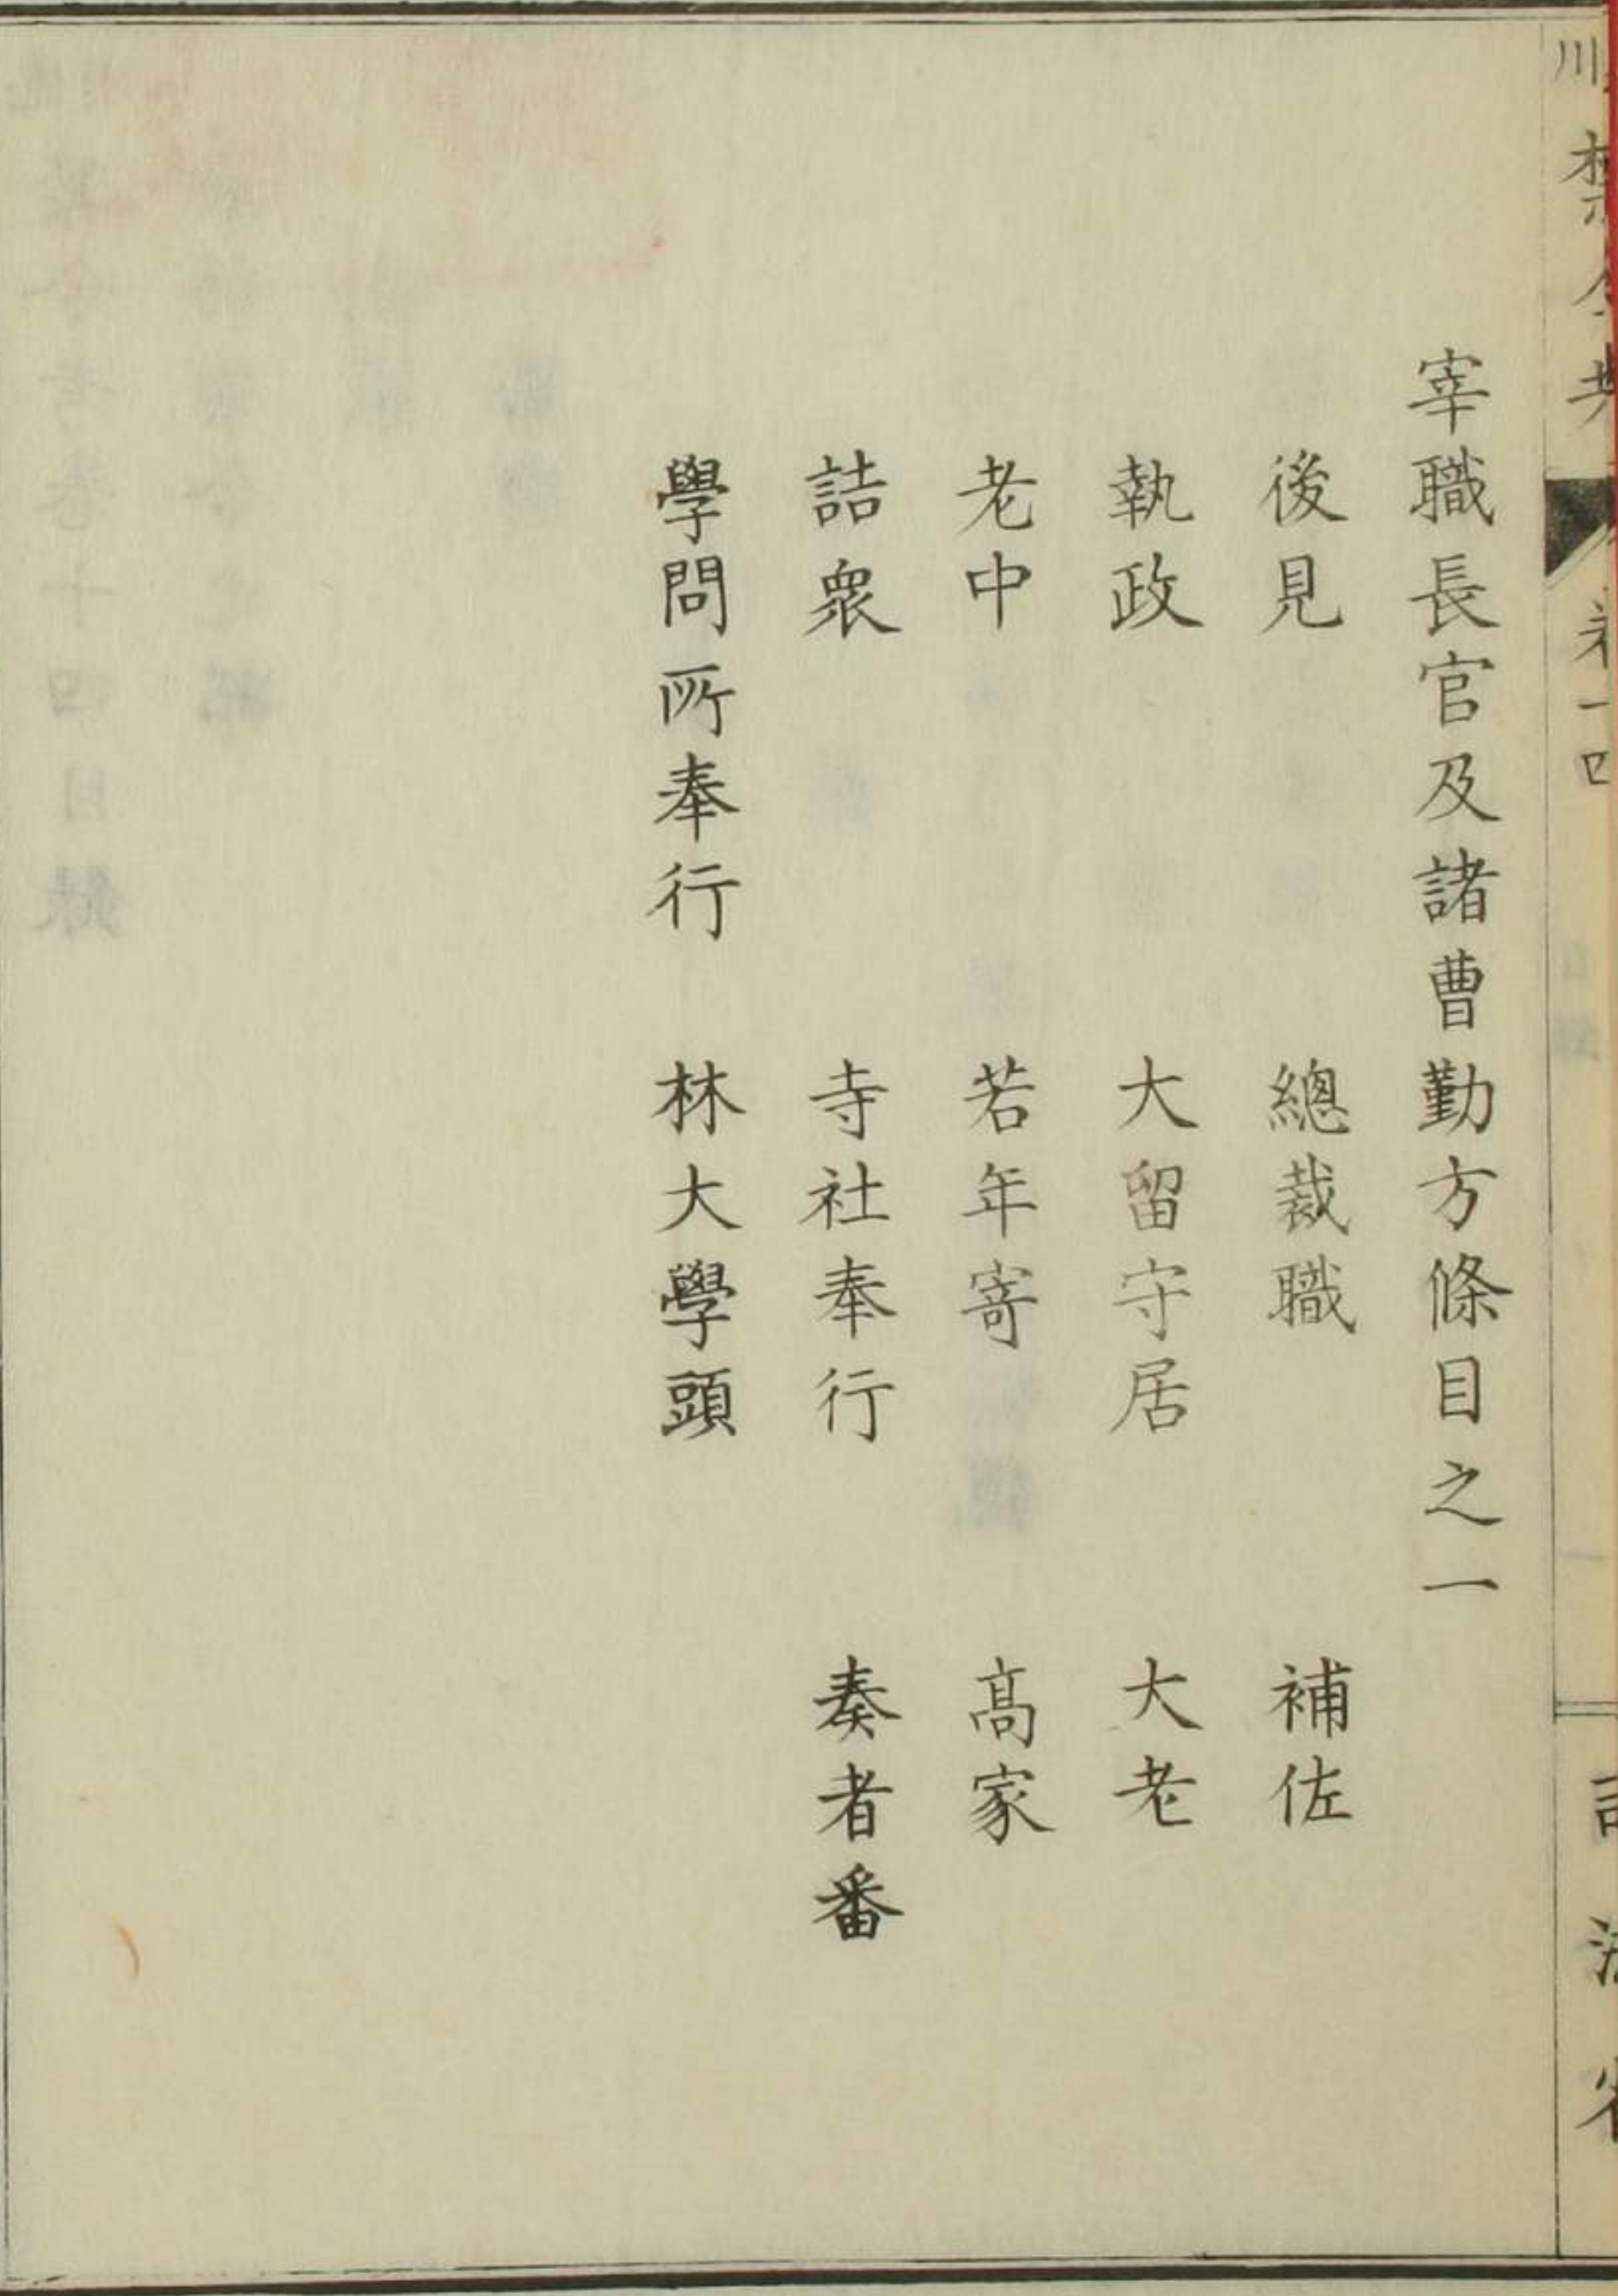 宰職長官及諸曹勤方條目之一
後見　總裁職　補佐
執政　大留守居　大老
老中　若年寄　高家
詰衆　寺社奉行　奏者番
學問所奉行　林大學頭